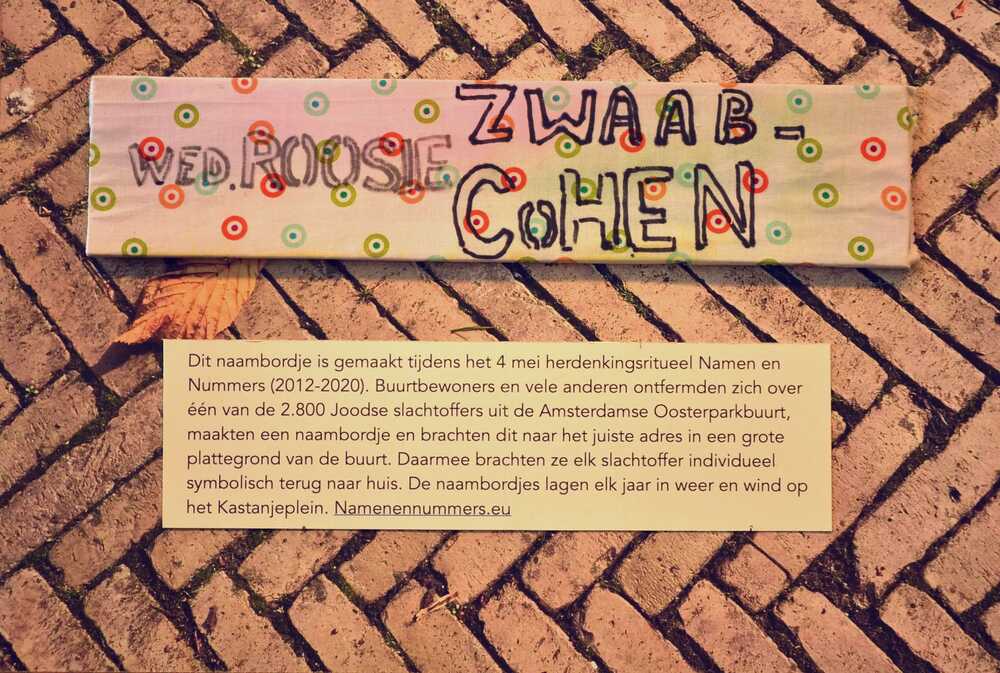 WED. ROOSIE ZWAAB-
COHEN
Dit naambordje is gemaakt tijdens het 4 mei herdenkingsritueel Namen en
Nummers (2012-2020). Buurtbewoners en vele anderen ontfermden zich over
één van de 2.800 Joodse slachtoffers uit de Amsterdamse Oosterparkbuurt,
maakten een naambordje en brachten dit naar het juiste adres in een grote
plattegrond van de buurt. Daarmee brachten ze elk slachtoffer individueel
symbolisch terug naar huis. De naambordjes lagen elk jaar in weer en wind op
het Kastanjeplein. Namenennummers.eu